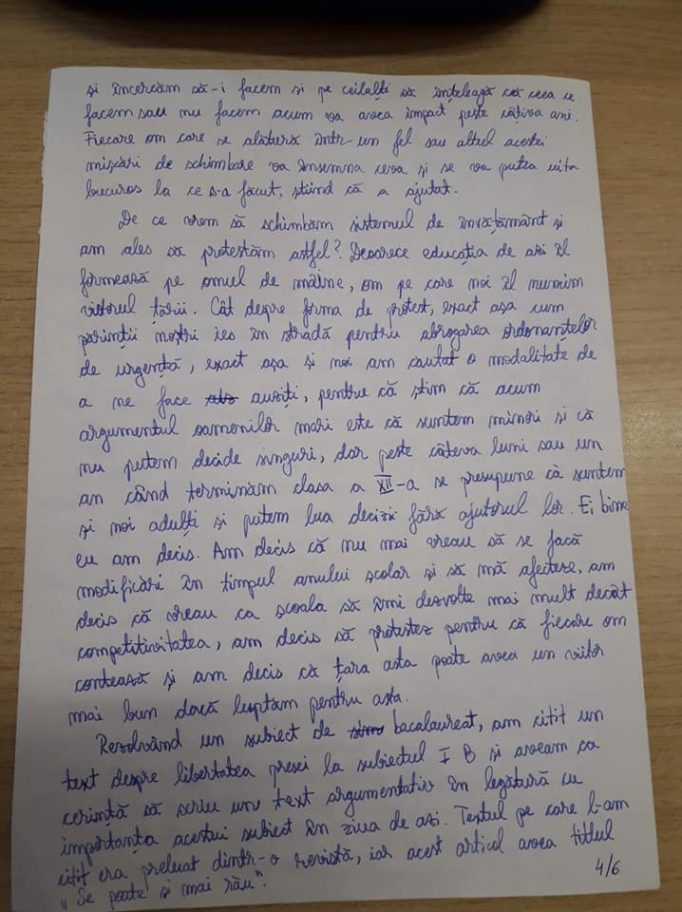 și încercăm să-i facem și pe ceilalți să înțeleagă că ceea ce
facem sau nu facem acum va avea impact peste câțiva ani.
Fiecare om care se alătură într-un fel sau altul acestei
mișcări de schimbare va însemna ceva și se va putea uita
bucuros la ce s-a făcut, știind că a ajutat.
De ce vrem să schimbăm sistemul de învățământ și
am ales să protestăm astfel? Deoarece educația de azi îl
formează pe omul de mâine, om pe care noi îl numim
viitorul țării. Cât despre forma de protest, exact așa cum
părinții noștri ies în stradă pentru abrogarea ordonanțelor
de urgență, exact așa și noi am căutat o modalitate de
a ne face auziți, pentru că știm că acum
argumentul oamenilor mari este că suntem minori și că
nu putem decide singuri, dar peste câteva luni sau un
an când terminăm clasa a XII-a se presupune că suntem
și noi adulți și putem lua decizii fără ajutorul lor. Ei bine
eu am decis. Am decis că nu mai vreau să se facă
modificări în timpul anului școlar și să mă afecteze, am
decis că vreau ca școala să îmi dezvolte mai mult decât
competitivitatea, am decis să protestez pentru că fiecare om
contează și am decis că țara asta poate avea un viitor
mai bun dacă luptăm pentru asta.
Rezolvând un subiect de bacalaureat, am citit un
text despre libertatea presei la subiectul I B și aveam ca
cerință să scriu un text argumentativ în legătură cu
importanța acestui subiect în ziua de azi. Textul pe care l-am
citit era preluat dintr-o revistă, iar acest articol avea titlul
„Se poate și mai rău".
4/6